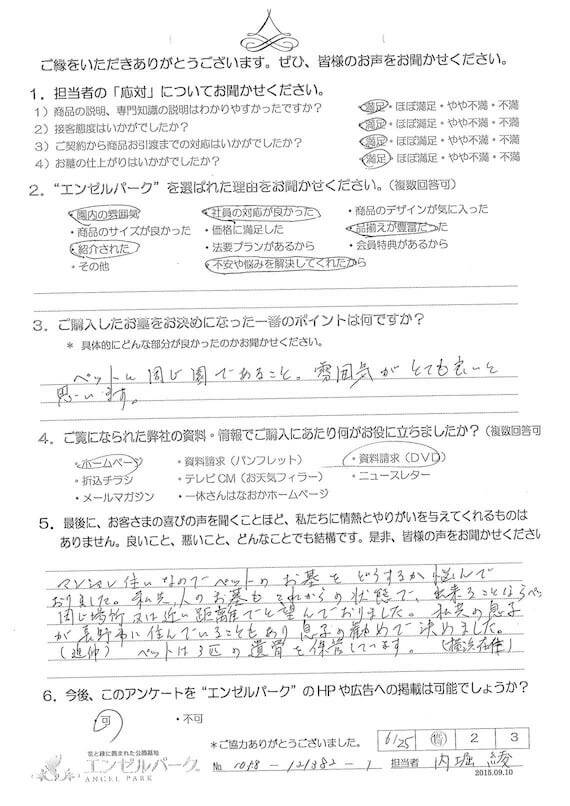 ご縁をいただきありがとうございます。ぜひ、皆様のお声をお聞かせください。
1. 担当者の「応対」についてお聞かせください。
1）商品の説明、専門知識の説明はわかりやすかったですか？ 満足・ほぼ満足・やや不満・不満
2）接客態度はいかがでしたか？ 満足・ほぼ満足・やや不満・不満
3）ご契約から商品お引渡までの対応はいかがでしたか？ 満足・ほぼ満足・やや不満・不満
4）お墓の仕上がりはいかがでしたか？ 満足・ほぼ満足・やや不満・不満
2. “エンゼルパーク”を選ばれた理由をお聞かせください。（複数回答可）
・園内の雰囲気 ・社員の対応が良かった ・商品のデザインが気に入った
・商品のサイズが良かった ・価格に満足した ・品揃えが豊富だった
・紹介された ・法要プランがあるから ・会員特典があるから
・その他 ・不安や悩みを解決してくれたから
3. ご購入したお墓をお決めになった一番のポイントは何ですか？
* 具体的にどんな部分が良かったのかお聞かせください。
ペットと同じ園であること。雰囲気がとても良いと
思います。
4. ご覧になられた弊社の資料・情報でご購入にあたり何がお役に立ちましたか？（複数回答可
・ホームページ ・資料請求（パンフレット） ・資料請求（DVD）
・折込チラシ ・テレビCM（お天気フィラー） ・ニュースレター
・メールマガジン ・一休さんはなおかホームページ
5. 最後に、お客さまの喜びの声を聞くことほど、私たちに情熱とやりがいを与えてくれるものは
ありません。良いこと、悪いこと、どんなことでも結構です。是非、皆様の声をお聞かせください
マンション住いなのでペットのお墓をどうするか悩んで
おりました。私共人のお墓もこれからの状態で、出来ることならペ
同じ場所又は近い距離でと望んでおりました。私共の息子
が長野市に住んでいることもあり息子の勧めで決めました。
（追伸） ペットは3匹の遺骨を保管しています。（横浜在住）
6. 今後、このアンケートを“エンゼルパーク”のHPや広告への掲載は可能でしょうか？
・可 ・不可
*ご協力ありがとうございました。 6/25 2 3
花と緑に囲まれた公園墓地
エンゼルパーク
ANGEL PARK
No 1058-121382-1 担当者 内堀 綾
2015.09.10